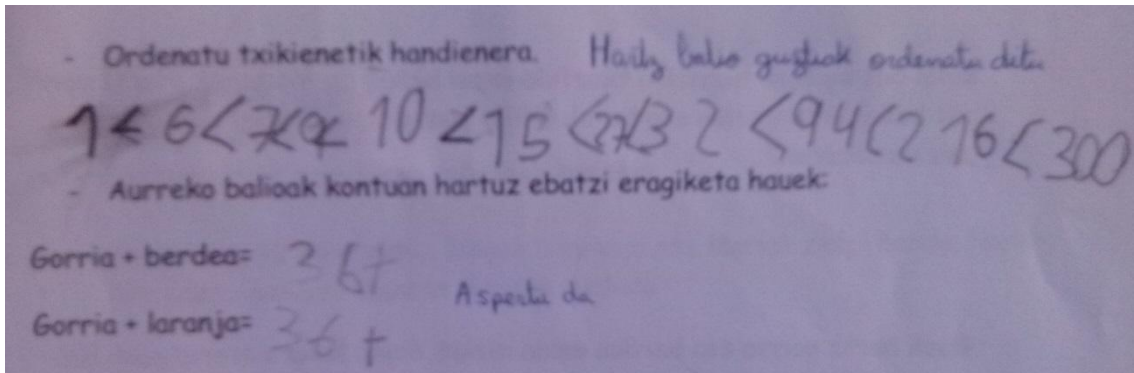 - Ordenatu txikienetik handienera. Haitz balio guztiak ordenatu ditu
1 < 6 < 7 < 9 < 10 < 15 < 27 < 32 < 94 < 216 < 300
- Aurreko balioak kontuan hartuz ebatzi eragiketa hauek:
Gorria + berdea= 36+
Aspertu da
Gorria + laranja= 36+